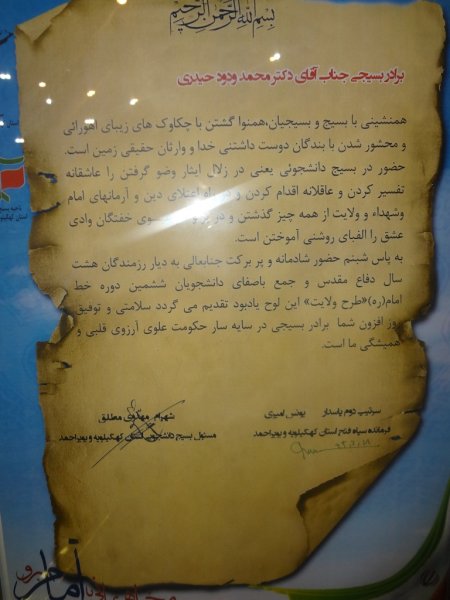 بسم الله الرحمن الرحیم
برادر بسیجی جناب آقای دکتر محمد ودود حیدری
همنشینی با بسیج و بسیجیان،همنوا گشتن با چکاوک های زیبای اهورائی
و محشور شدن با بندگان دوست داشتنی خدا و وارثان حقیقی زمین است.
حضور در بسیج دانشجوئی یعنی در زلال ایثار وضو گرفتن را عاشقانه
تفسیر کردن و عاقلانه اقدام کردن و در راه اعتلای دین و آرمانهای امام
وشهداء و ولایت از همه چیز گذشتن و در خفتگان وادی
عشق را الفبای روشنی آموختن است.
به پاس شبنم حضور شادمانه و پر برکت جنابعالی به دیار رزمندگان هشت
سال دفاع مقدس و جمع باصفای دانشجویان ششمین دوره خط
امام(ره)«طرح ولایت» این لوح یادبود تقدیم می گردد سلامتی و توفیق
روز افزون شما برادر بسیجی در سایه سار حکومت علوی آرزوی قلبی و
همیشگی ما است.
سرتیپ دوم پاسدار یونس امیری
فرمانده سپاه فتح استان کهگیلویه و بویراحمد
شهرام مهدوی مطلق
مسئول بسیج دانشجویی استان کهگیلویه و بویراحمد